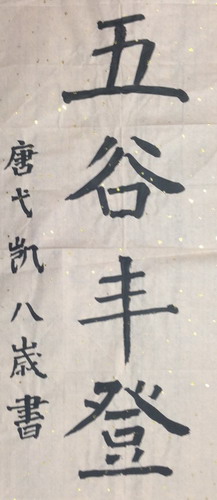 五谷丰登
唐弋凯八歲書